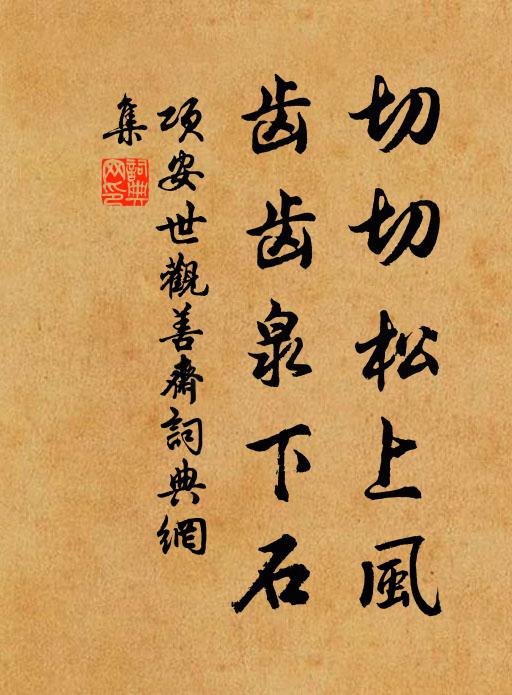 切切松上風
齿齿泉下石
項安世觀善齋詞典網
集
詞典網印